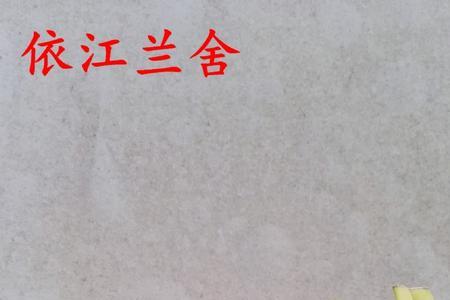 依江兰舍